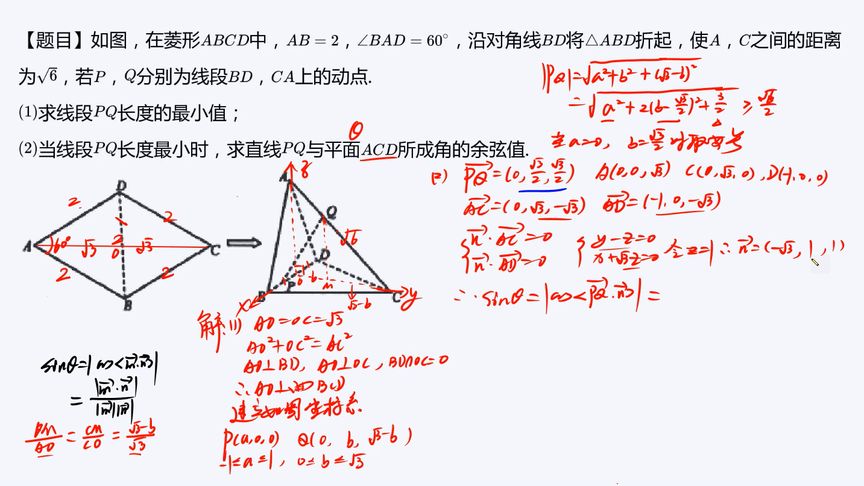 【题目】如图，在菱形ABCD中，AB=2，∠BAD=60°，沿对角线BD将△ABD折起，使A，C之间的距离
为√6，若P，Q分别为线段BD，CA上的动点.
(1)求线段PQ长度的最小值；
(2)当线段PQ长度最小时，求直线PQ与平面ACD所成角的余弦值.
θ
|PQ|=√(a²+b²+(√3-b)²)
=√(a²+2(b-√3/2)²+3/2) ≥ √6/2
当a=0，b=√3/2时取等号
(2) PQ=(0, √3/2, √3/2) A(0,0,√3) C(0,√3,0), D(-1,0,0)
AC=(0,√3,-√3) AD=(-1,0,-√3)
{n·AC=0 {y-z=0
{n·AD=0 {x+√3z=0 令z=1 ∴n=(-√3,1,1)
∴sinθ=|cos<PQ·n>|=
D
2 2
A 60° √3 2 O √3 C
2 2
B
z
A
Q
√6
D
B P O b M √3-b C y
x
解:(1) AO=OC=√3
AO²+OC²=AC²
AO⊥BD, AO⊥OC, BD∩OC=O
∴AO⊥面BCD
建立如图坐标系
P(a,0,0) Q(0, b, √3-b)
-1≤a≤1, 0≤b≤√3
sinθ=|cos<m·n>|
=|m·n|/|m||n|
QM/AO=CM/CO=(√3-b)/√3